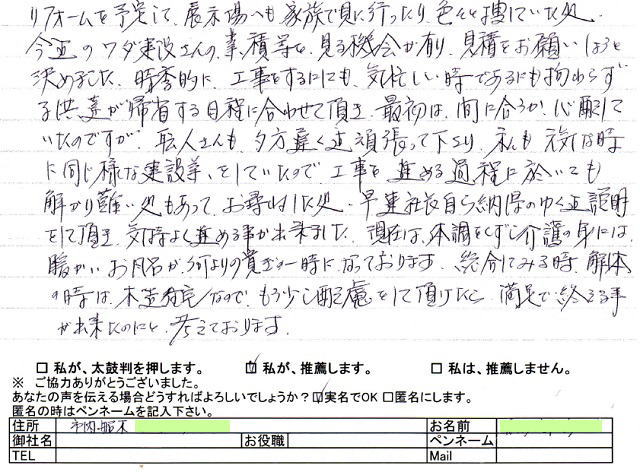 リフォームを予定して、展示場へも家族で見に行ったり色々と捜していた処
今迄のワダ建設さんの業績等を見る機会が有り、見積をお願いしようと
決めました。時季的に、工事をするにしても、気忙しい時であるにも拘わらず
子供達が帰省する日程に合わせて頂き、最初は、間に合うか、心配して
いたのですが、職人さんも、夕方遅く迄頑張って下さり、私も元気な時
に同じ様な建設業をしていたので工事を進める過程に於いても
解かり難い処もあって、お尋ねした処、早速社長自ら納得のゆく迄説明
をして頂き、気持よく進める事が出来ました。現在は、体調をくずし介護の身には、
暖かいお風呂が何よりの寛ぎの一時になっております。総合してみる時、解体
の時は、木造住宅なので、もう少し配慮をして頂けたら、満足で終える事
が出来たのにと、考えております。
□ 私が、太鼓判を押します。 ☑ 私が、推薦します。 □ 私は、推薦しません。
※ ご協力ありがとうございました。
あなたの声を伝える場合どうすればよろしいでしょうか? ☑実名でOK □匿名にします。
匿名の時はペンネームを記入下さい。
住所 市内昭和 お名前
御社名 お役職 ペンネーム
TEL Mail